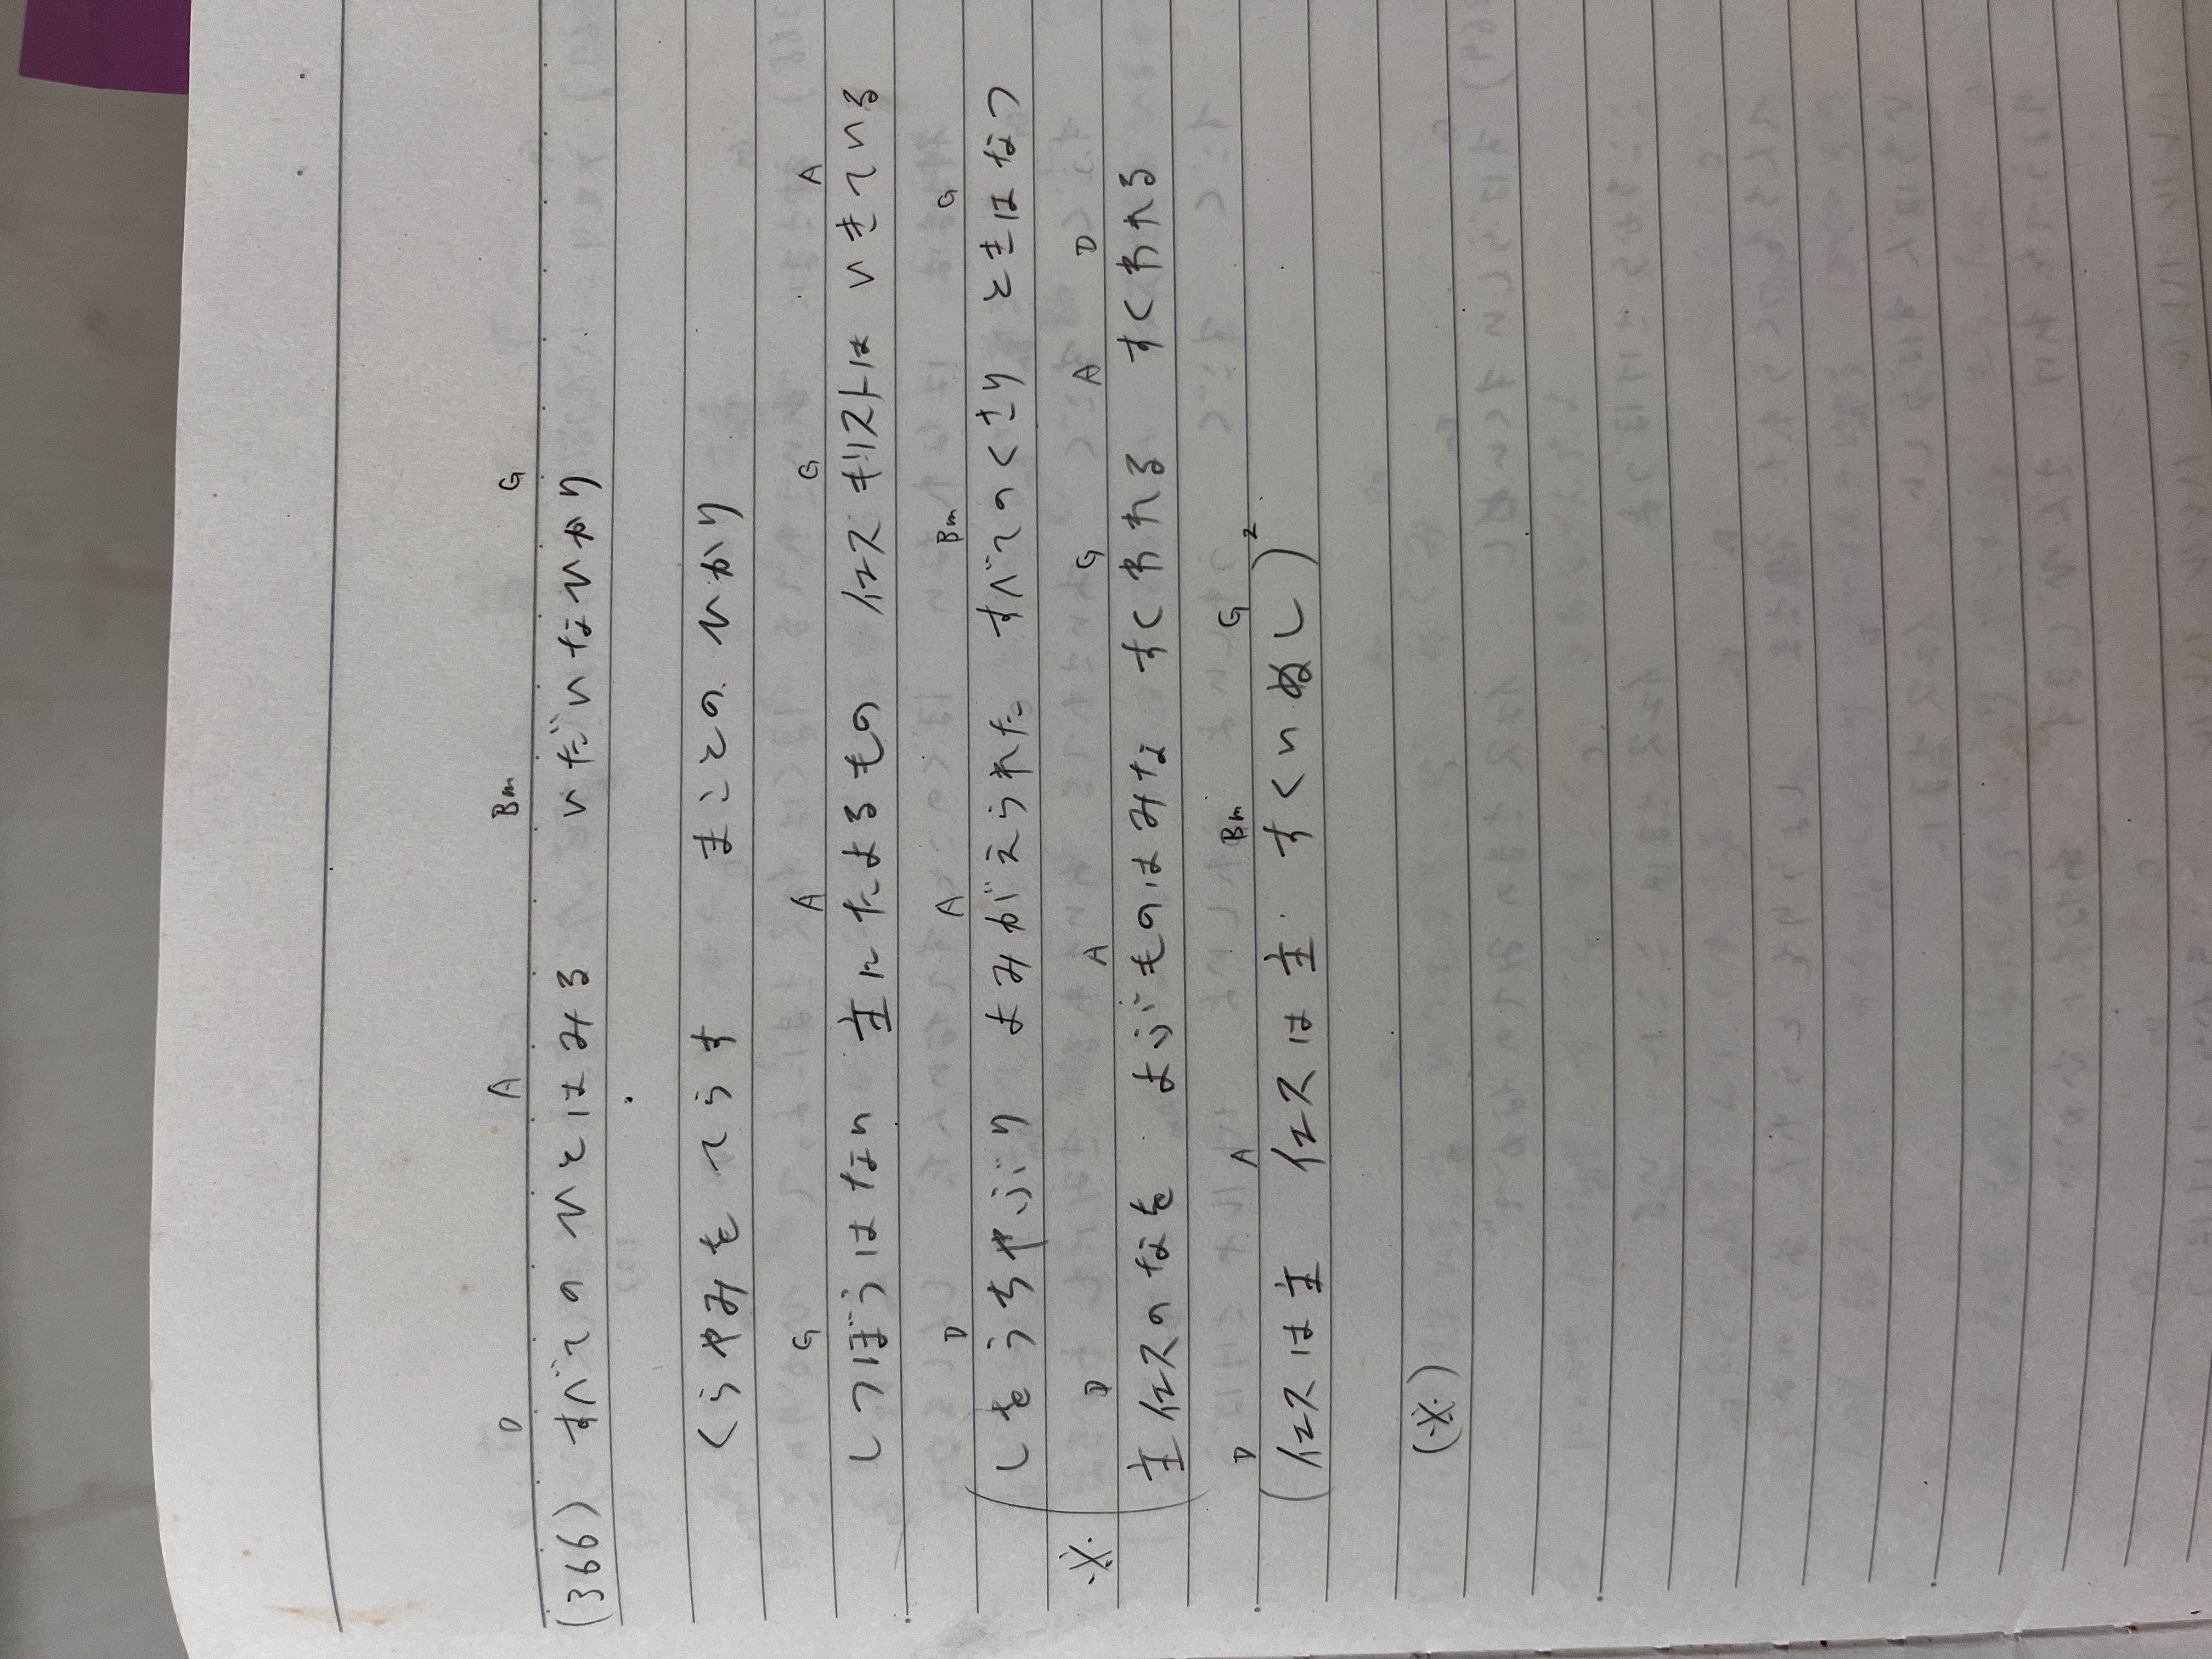 D A Bm G
(366) すべての ひとはみる いだいなひかり
くらやみを てらす まことの ひかり
G A G A
しつぼうはない 主にたよるもの イエスキリストは いきている
D A Bm G
しをうちやぶり よみがえられた すべてのくさり ときはなつ
※ D A G A D
主イエスのなを よぶものはみな すくわれる すくわれる
D A Bm G
(イエスは主 イエスは主 すくいぬし)2
(※)